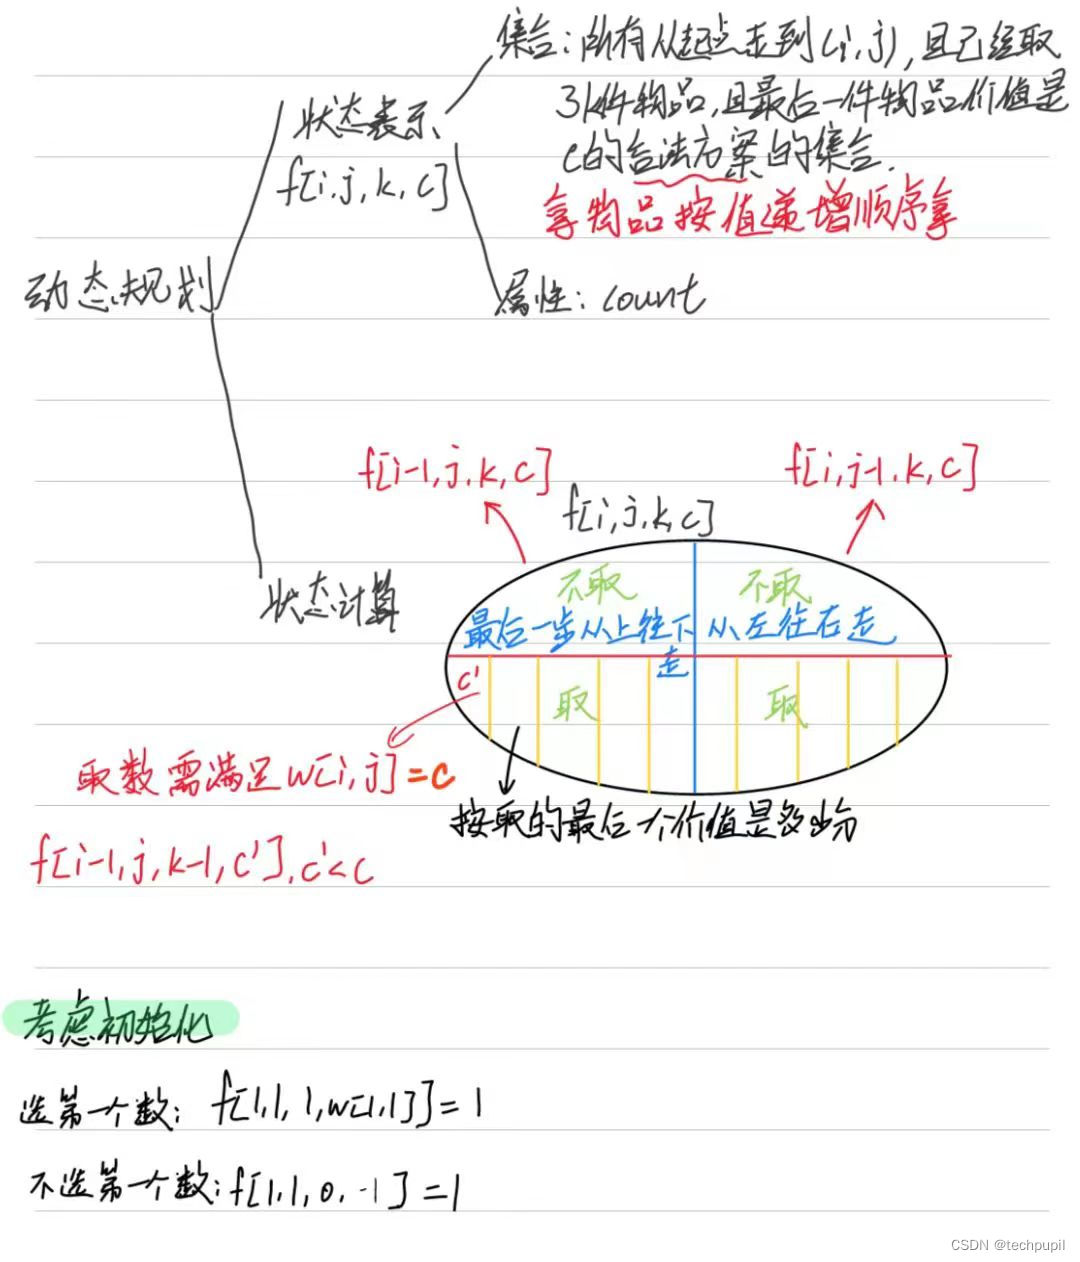 集合：所有从起点走到(i,j),且已经取
状态表示
3k件物品,且最后一件物品价值是
f[i,j,k,c]
c的合法方案的集合.
拿物品按值递增顺序拿
动态规划
属性：count
f[i-1,j,k,c]
f[i,j-1,k,c]
f[i,j,k,c]
状态计算
不取
不取
最后一步从上往下
走
从左往右走
c'
取
取
取数需满足w[i,j]=c
按取的最后一个价值是多少分
f[i-1,j,k-1,c'],c'<c
考虑初始化
选第一个数：f[1,1,1,w[1,1]]=1
不选第一个数：f[1,1,0,-1]=1
CSDN @techpupil